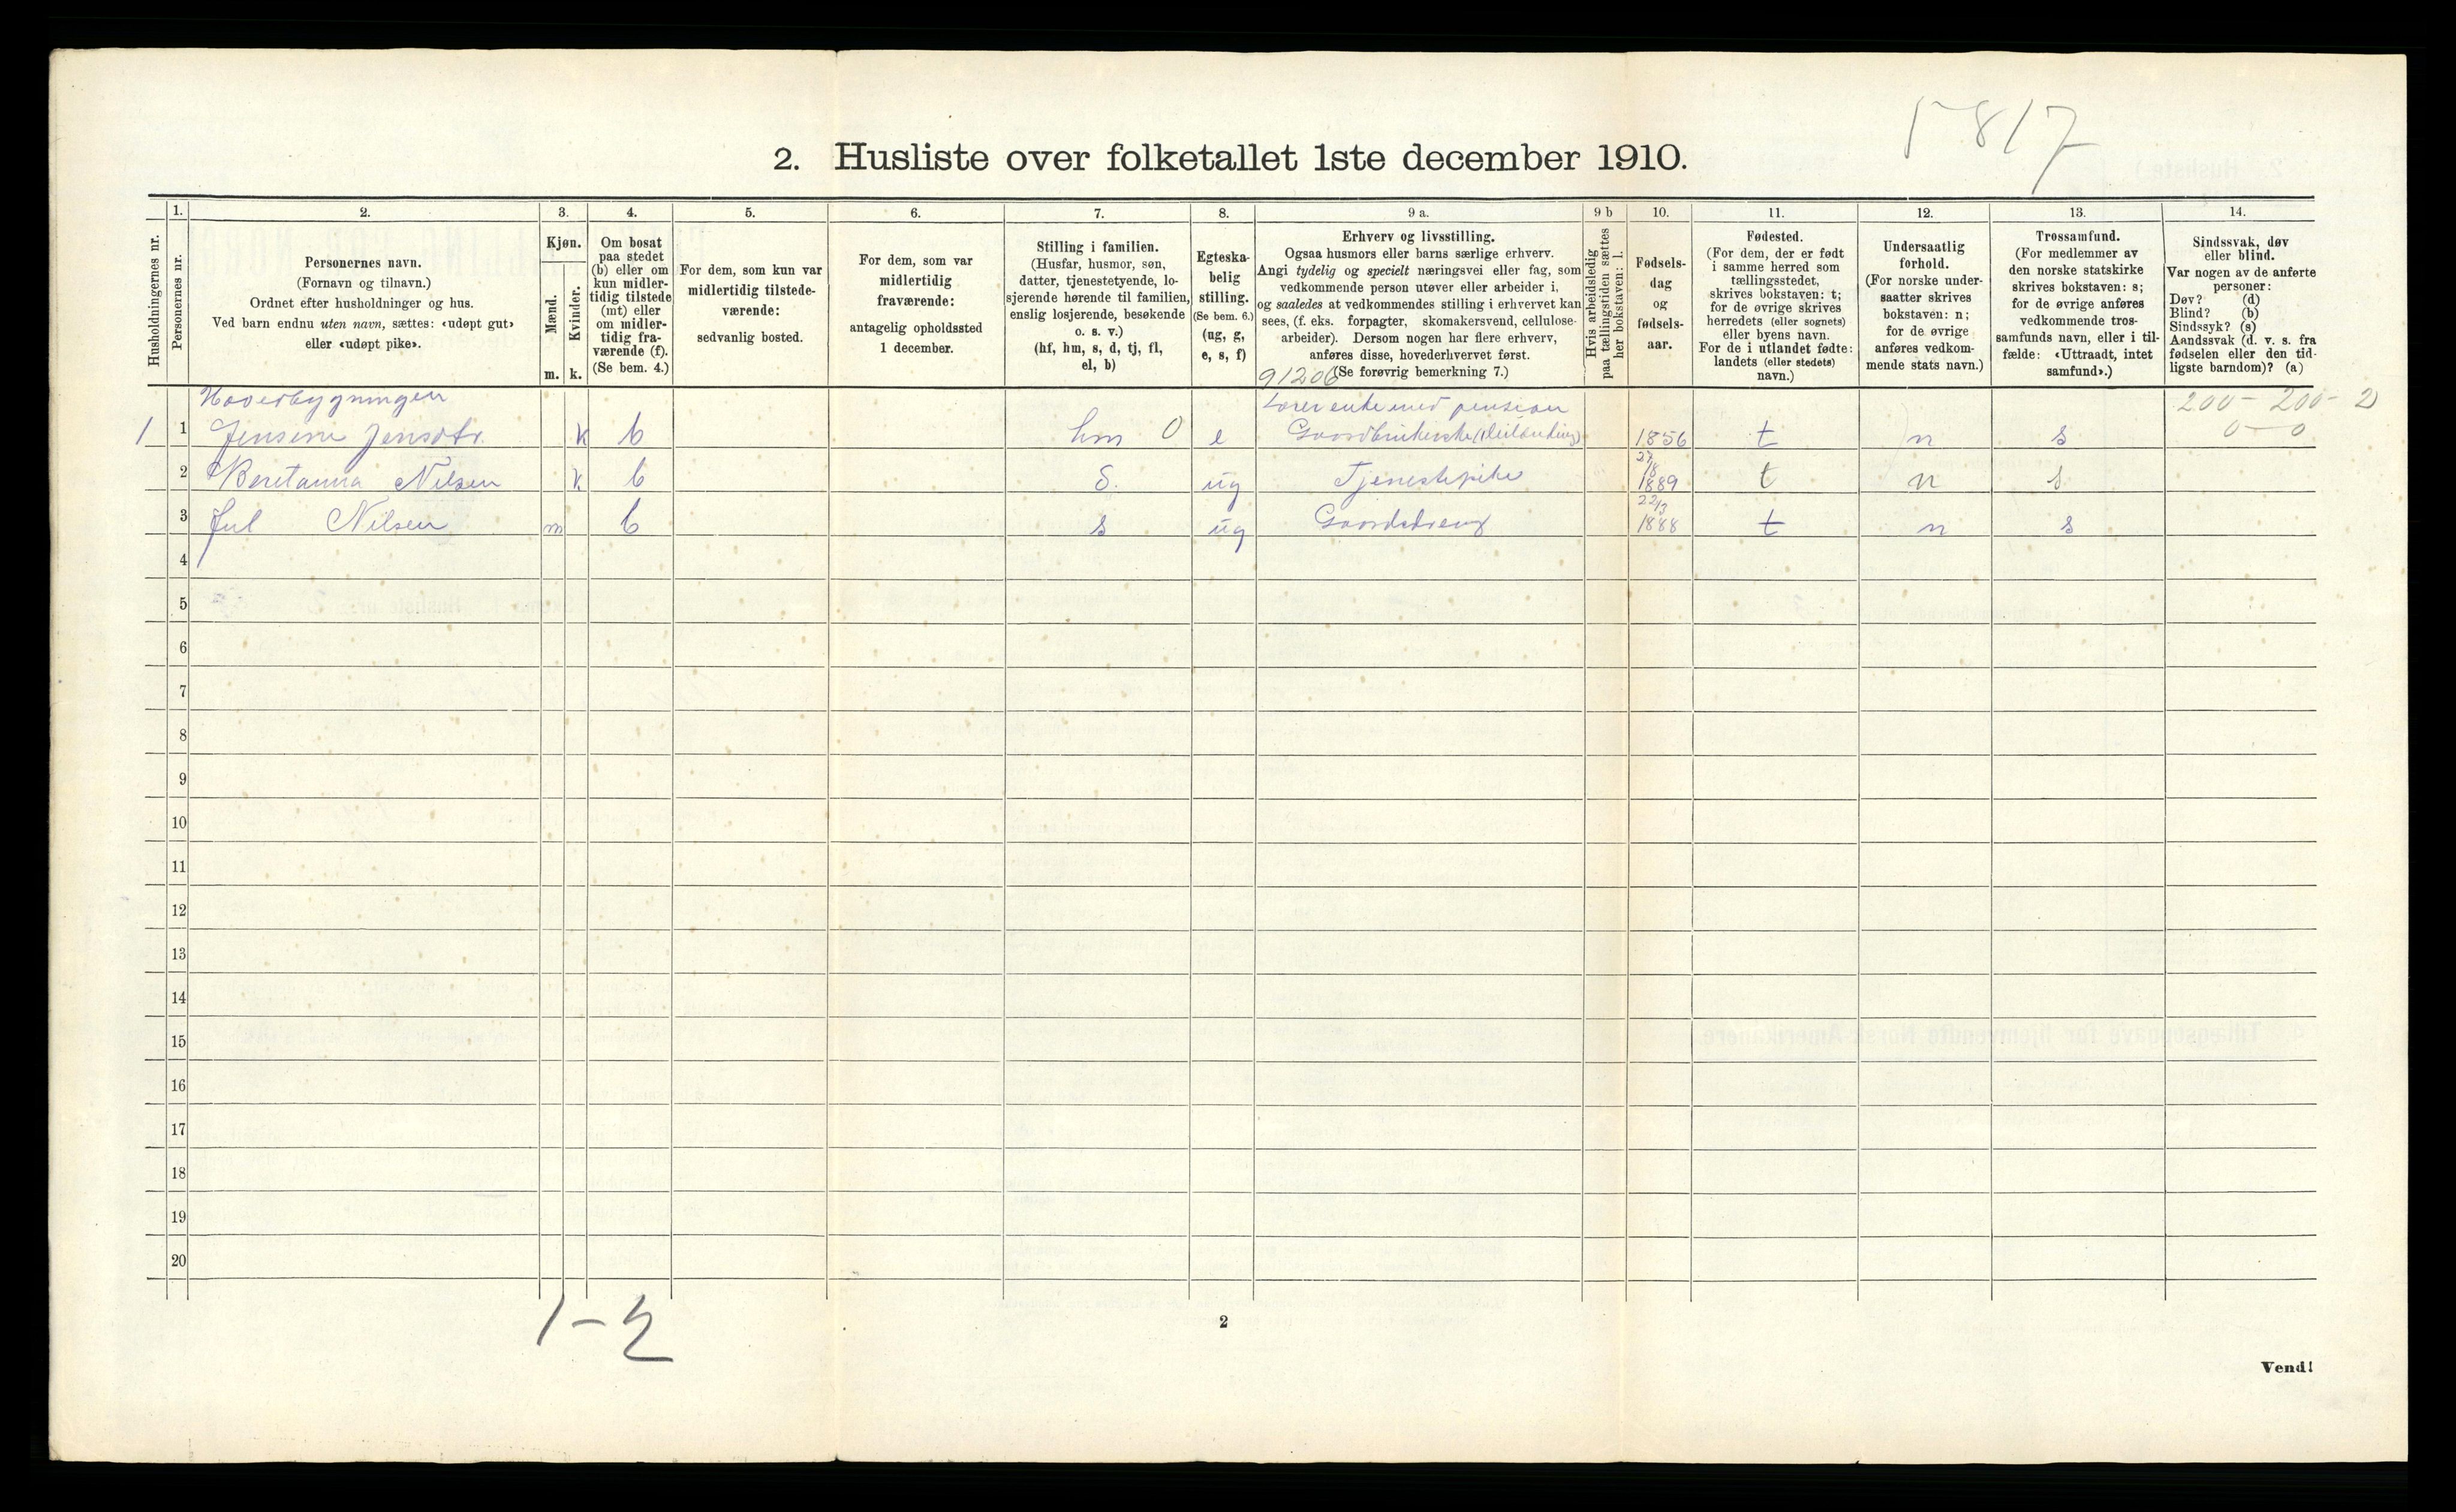 5817
2. Husliste over folketallet 1ste december 1910.
Husholdningernes nr.
1.
Personernes nr.
2.
Personernes navn.
(Fornavn og tilnavn.)
Ordnet efter husholdninger og hus.
Ved barn endnu uten navn, sættes: «udøpt gut»
eller «udøpt pike».
3.
Kjøn.
Mænd.
Kvinder.
m. k.
4.
Om bosat
paa stedet
(b) eller om
kun midler-
tidig tilstede
(mt) eller
om midler-
tidig fra-
værende (f).
(Se bem. 4.)
5.
For dem, som kun var
midlertidig tilstede-
værende:
sedvanlig bosted.
6.
For dem, som var
midlertidig
fraværende:
antagelig opholdssted
1 december.
7.
Stilling i familien.
(Husfar, husmor, søn,
datter, tjenestetyende, lo-
sjerende hørende til familien,
enslig losjerende, besøkende
o. s. v.)
(hf, hm, s, d, tj, fl,
el, b)
8.
Egteska-
belig
stilling.
(Se bem. 6.)
(ug, g,
e, s, f)
9 a.
Erhverv og livsstilling.
Ogsaa husmors eller barns særlige erhverv.
Angi tydelig og specielt næringsvei eller fag, som
vedkommende person utøver eller arbeider i,
og saaledes at vedkommendes stilling i erhvervet kan
sees, (f. eks. forpagter, skomakersvend, cellulose-
arbeider). Dersom nogen har flere erhverv,
anføres disse, hovederhvervet først.
(Se forøvrig bemerkning 7.)
91206
9 b
Hvis arbeidsledig
paa tællingstiden sættes
her bokstaven: l.
10.
Fødsels-
dag
og
fødsels-
aar.
11.
Fødested.
(For dem, der er født
i samme herred som
tællingsstedet,
skrives bokstaven: t;
for de øvrige skrives
herredets (eller sognets)
eller byens navn.
For de i utlandet fødte:
landets (eller stedets)
navn.)
12.
Undersaatlig
forhold.
(For norske under-
saatter skrives
bokstaven: n;
for de øvrige
anføres vedkom-
mende stats navn.)
13.
Trossamfund.
(For medlemmer av
den norske statskirke
skrives bokstaven: s;
for de øvrige anføres
vedkommende tros-
samfunds navn, eller i til-
fælde: «Uttraadt, intet
samfund».)
14.
Sindssvak, døv
eller blind.
Var nogen av de anførte
personer:
Døv? (d)
Blind? (b)
Sindssyk? (s)
Aandssvak (d. v. s. fra
fødselen eller den tid-
ligste barndom)? (a)
Hovedbygningen Lærerenke med pension 200 - 200 - 2)
1 1 Jensine Jensdtr. k b hm 0 e Gaardbrukerske (leilænding) 1856 t n s 0 - 0
2 Beretanna Nilsen k b S. ug Tjenestepike 27/8 1889 t n s
3 Jul Nilsen m b s ug Gaardsdreng 22/3 1888 t n s
4
5
6
7
8
9
10
11
12
13
14
15
16
17
18
19
20
1 - 2
2
Vend!